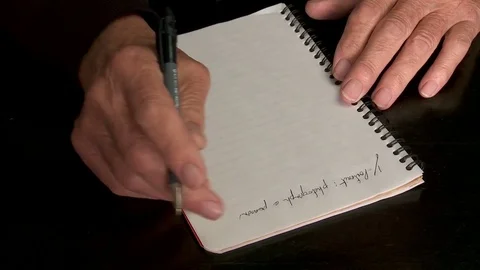 1/ Portrait: photograph a person